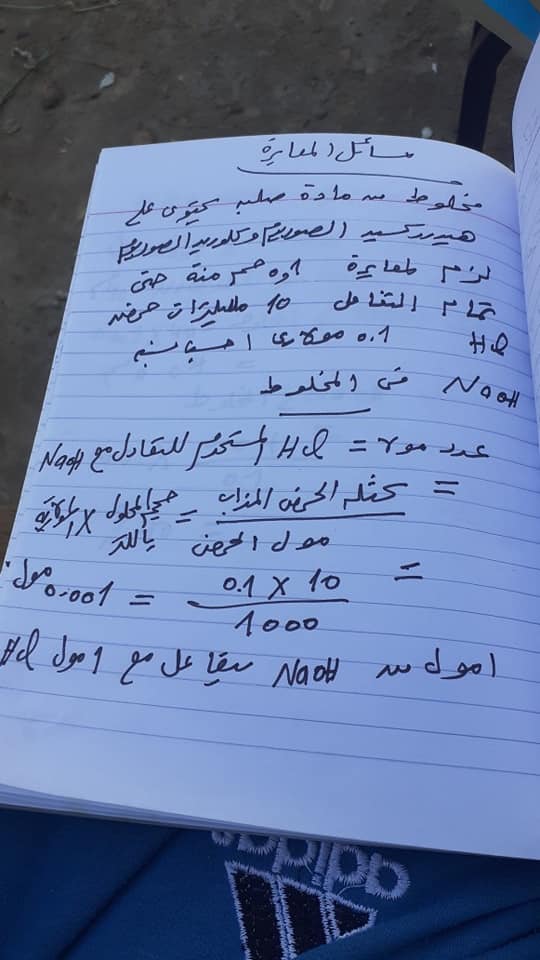 مسائل المعايرة
مخلوط من مادة صلبه يحتوى على
هيدروكسيد الصوديوم وكلوريد الصوديوم
لزم لمعايرة 0,1 جم منة حتى
تمام التفاعل 10 ملليلترات حمض
HCl 0.1 مولارى احسب نسبه
NaOH فى المخلوط
عدد مولا HCl المستخدم للتعادل مع NaOH
= كتله الحمض المذاب / مول الحمض = حجم المحلول باللتر X المولارية
= 0.1 X 10 / 1000 = 0.001 مول
1 مول من NaOH يتفاعل مع 1 مول HCl
adidas